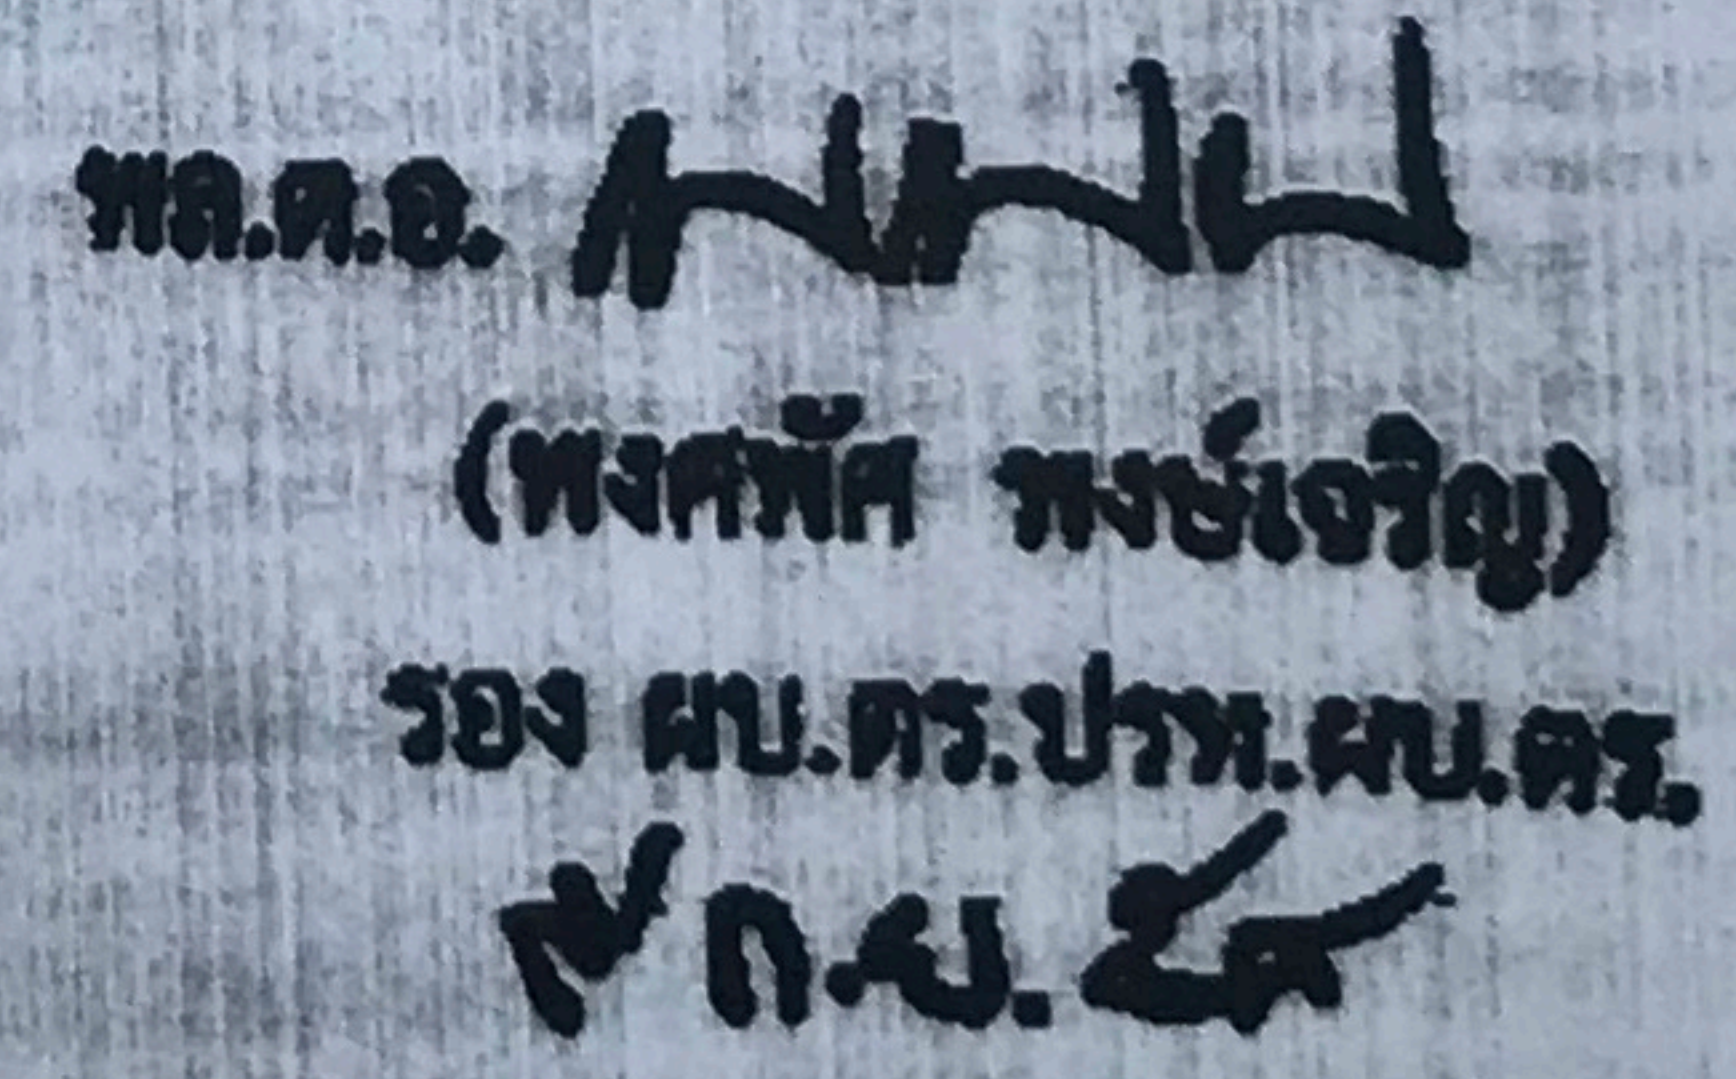 พล.ต.อ.
(พงศพัศ พงษ์เจริญ)
รอง ผบ.ตร.ปรท.ผบ.ตร.
ก.ย.